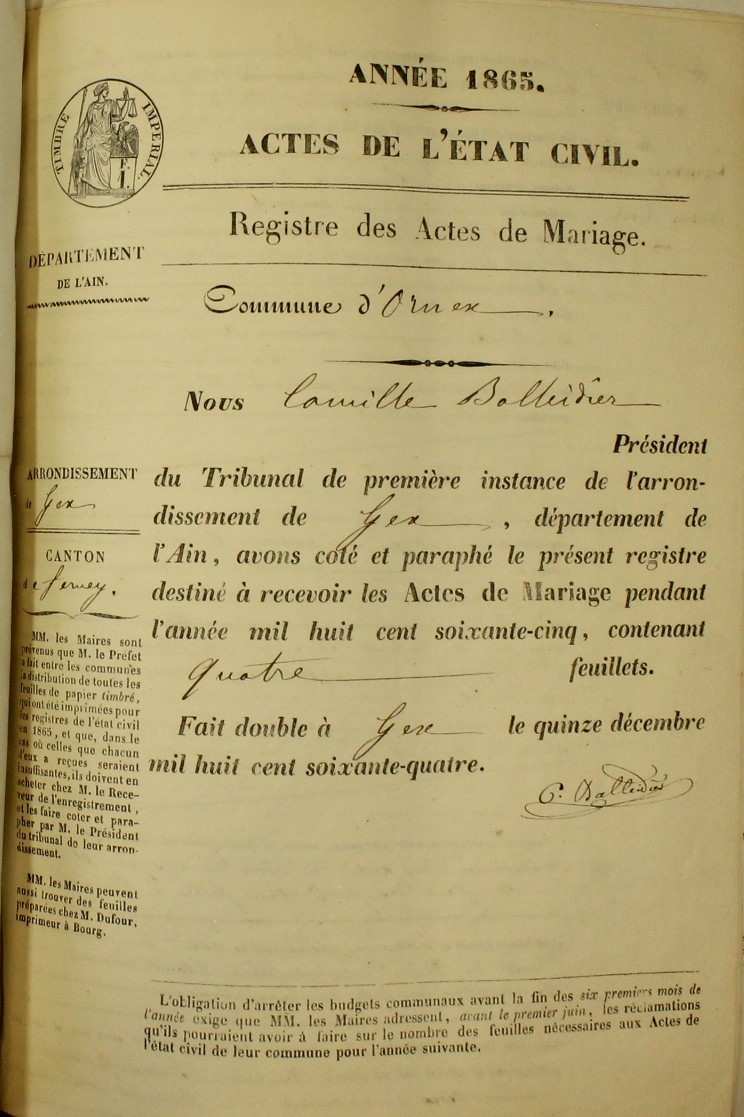 ANNÉE 1865.
ACTES DE L'ÉTAT CIVIL.
TIMBRE IMPÉRIAL.
Registre des Actes de Mariage.
DÉPARTEMENT
DE L'AIN.
Commune d'Ornex.
Nous Camille Balleidier
Président
du Tribunal de première instance de l'arron-
dissement de Gex, département de
l'Ain, avons coté et paraphé le présent registre
destiné à recevoir les Actes de Mariage pendant
l'année mil huit cent soixante-cinq, contenant
quatre feuillets.
Fait double à Gex le quinze décembre
mil huit cent soixante-quatre.
C. Balleidier
ARRONDISSEMENT
de Gex
CANTON
de Ferney.
MM. les Maires sont
prévenus que M. le Préfet
a fait entre les communes
la distribution de toutes les
feuilles de papier timbré,
qui ont été imprimées pour
les registres de l'état civil
en 1865, et que, dans le
cas où celles que chacun
d'eux a reçues seraient
insuffisantes, ils doivent en
acheter chez M. le Rece-
veur de l'enregistrement,
et les faire coter et para-
pher par M. le Président
du tribunal de leur arron-
dissement.
MM. les Maires peuvent
aussi trouver des feuilles
préparées chez M. Dufour,
imprimeur à Bourg.
L'obligation d'arrêter les budgets communaux avant la fin des six premiers mois de
l'année exige que MM. les Maires adressent, avant le premier juin, les réclamations
qu'ils pourraient avoir à faire sur le nombre des feuilles nécessaires aux Actes de
l'état civil de leur commune pour l'année suivante.